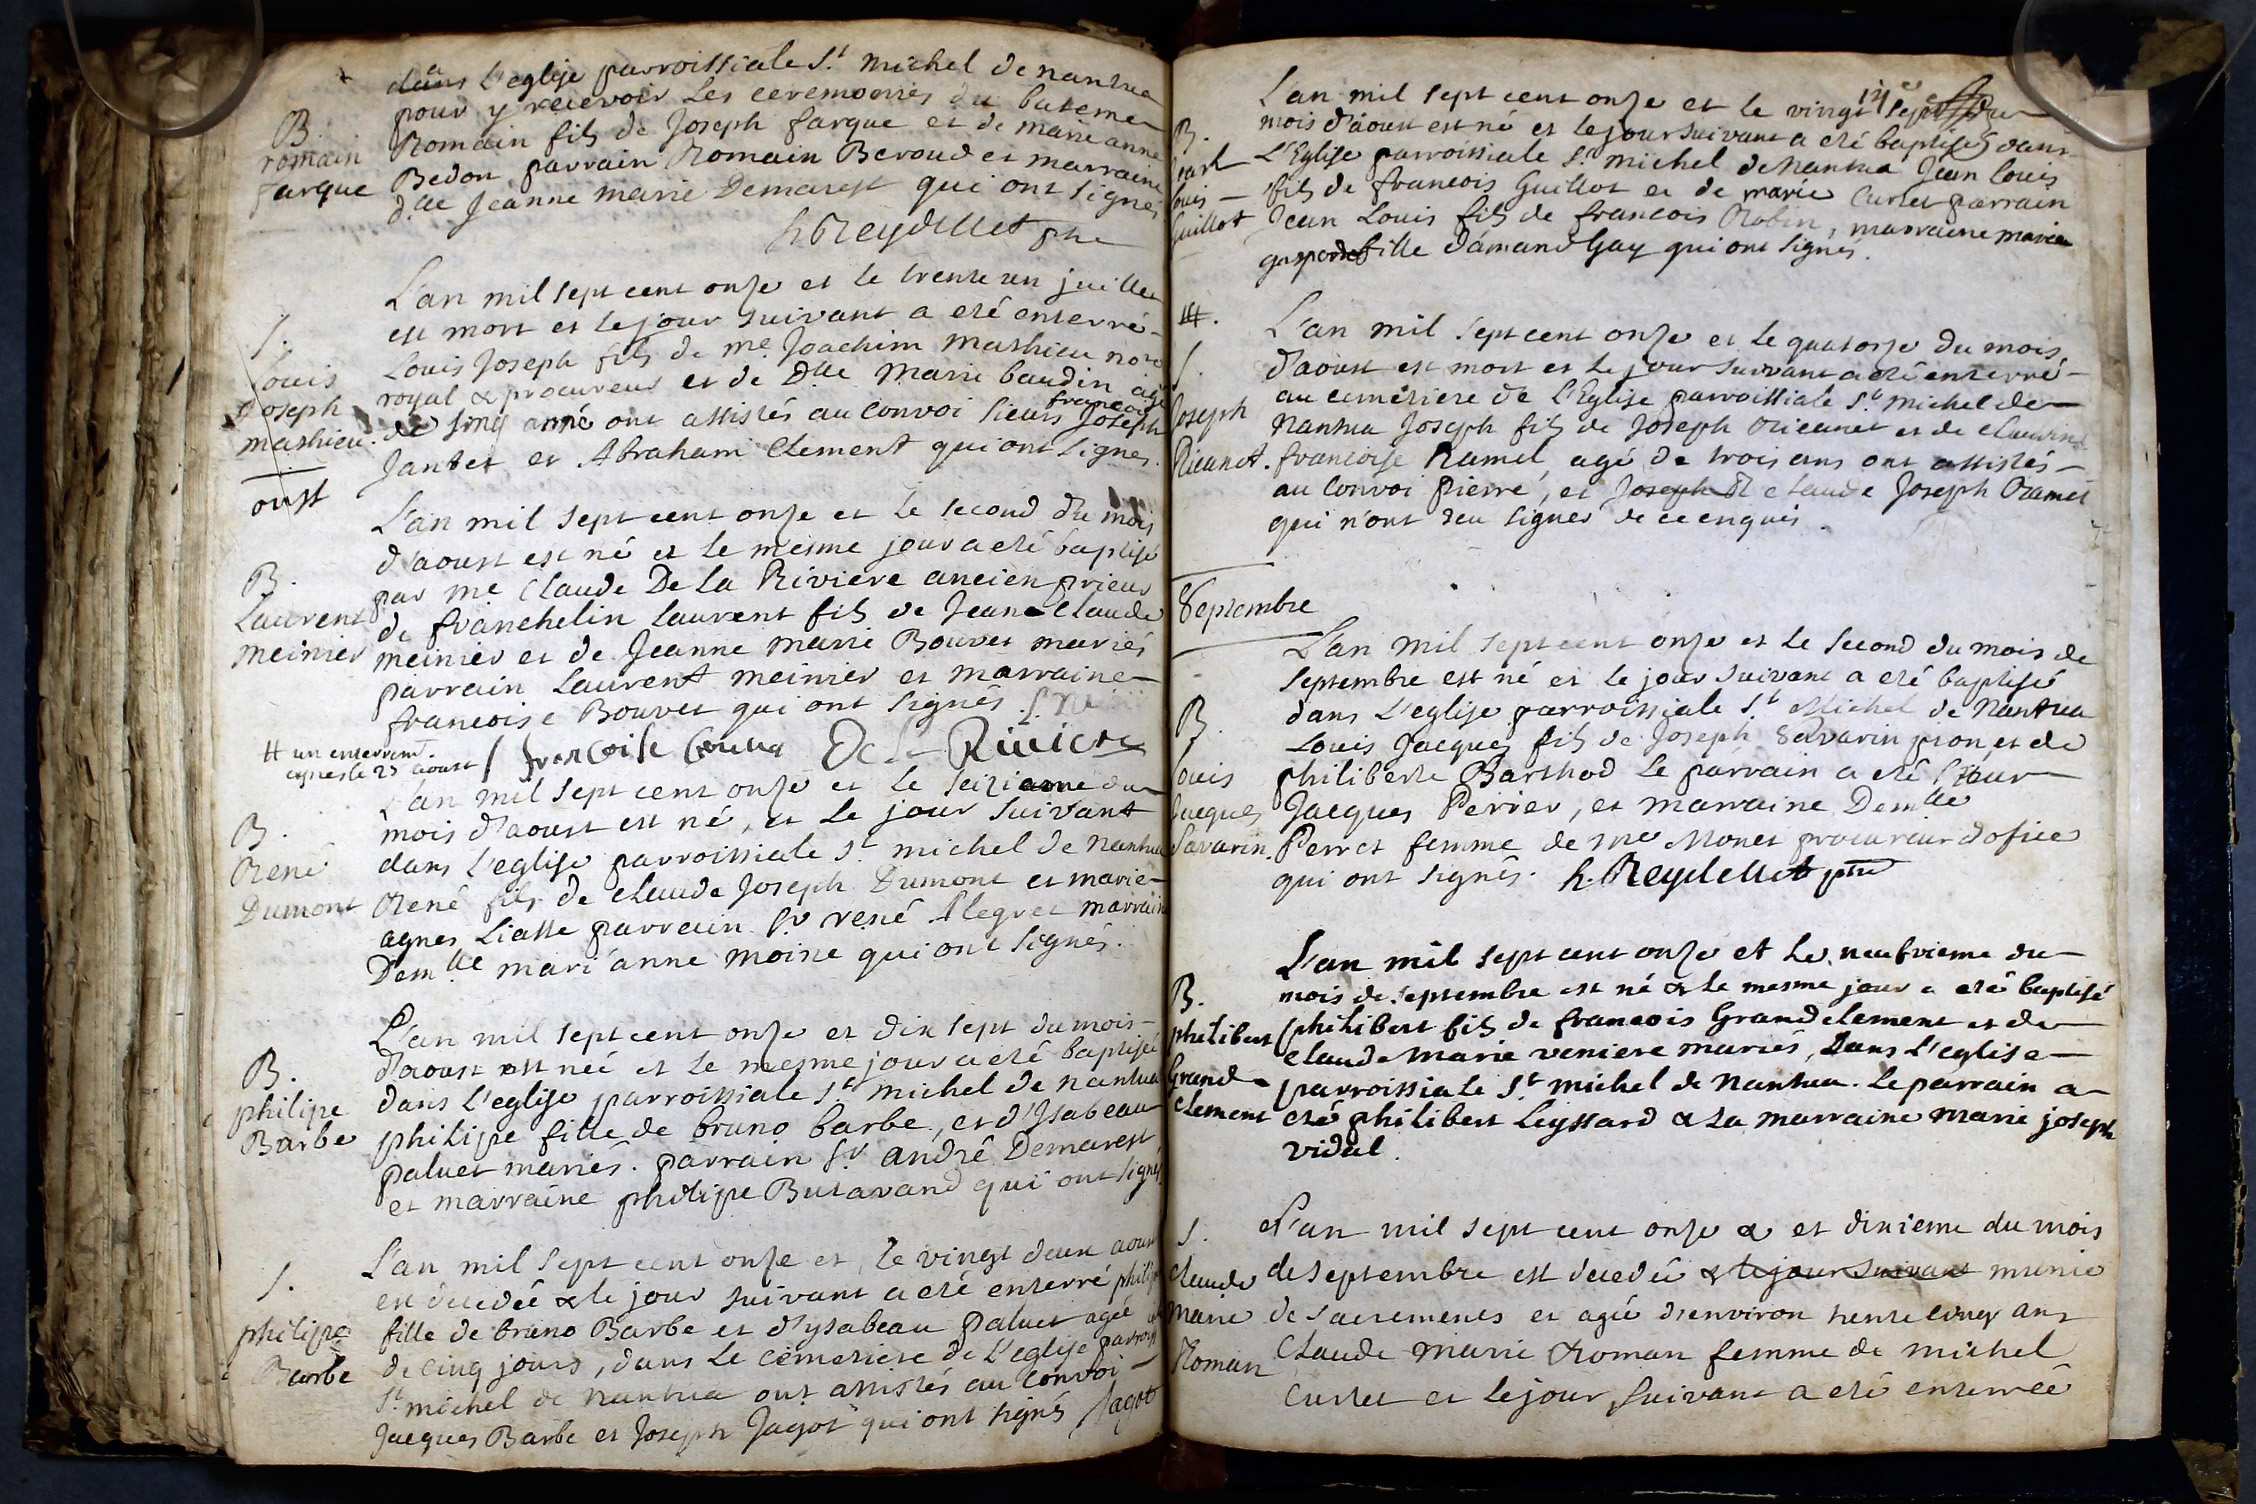 dans L'eglise parroissiale St michel de nantua
pour y recevoir Les ceremonies du bateme
B.
romain
farque
Romain fils de Joseph farque et de marie anne
Bedon parrain Romain Beroud et marraine
dlle Jeanne marie Demarest qui ont signés
h Reydellet ptre
S.
Louis
Joseph
mathieu.
L'an mil sept cent onze et le trente un juillet
est mort et le jour suivant a eté enterré
Louis Joseph fils de me Joachim mathieu nore
royal & procureur et de Dlle Marie baudin agé
de sinq anné ont assistés au Convoi sieurs françois Joseph
Jantet et Abraham Clement qui ont signes.
oust
B.
Laurent
meinier
L'an mil sept cent onze et le second du mois
d'aoust est né et le mesme jour a eté baptisé
par me Claude De la Riviere ancien prieur
de franchelin Laurent fils de Jean Claude
meinier et de Jeanne marie Bouvet mariés
parrain Laurent meinier et marraine
francoise Bouvet qui ont signés
# un enterrem.
apres le 23 aoust
francoise De la Riviere
B.
René
Dumont
L'an mil sept cent onze et le seizieme du
mois d'aoust est né, et le jour suivant
dans l'eglise parroissiale St michel de nantua
René fils de claude Joseph Dumont et marie
agnes Liatte parrain Sr rené Alegret marraine
Demlle mari'anne moine qui ont signés.
B.
philipe
Barbe
L'an mil sept cent onze et dix sept du mois
d'aoust est neé et le mesme jour a eté baptisé
dans L'eglise parroissiale St michel de nantua
philipe fille de bruno barbe, et d'Isabeau
paluet mariés. parrain Sr andré Demarest
et marraine philipe Butavand qui ont signés
S.
philipe
Barbe
L'an mil sept cent onze et le vingt deux aoust
est decedée & le jour suivant a eté enterré philipe
fille de bruno Barbe et d'ysabeau paluet agée
de cinq jours, dans Le cemetiere de L'eglise parroiss
St michel de nantua ont assistés au Convoi
Jacques Barbe et Joseph Jagot qui ont signés Jagot
B.
jean
louis
guillot
L'an mil sept cent onze et le vingt sept du
mois d'aoust est né et le jour suivant a eté baptisé dans
L'Eglise parroissiale St michel de Nantua Jean louis
fils de francois Guillot et de marie Curtet parrain
Jean Louis fils de francois Robin, marraine marie
gasparde fille d'amand Gay qui ont signés.
#.
S.
Joseph
Ricanet.
L'an mil sept cent onze et le quatorze du mois
d'aoust est mort et le jour suivant a eté enterré
au cemétiere de L'Eglise parroissiale St michel de
Nantua Joseph fils de Joseph Ricanet et de claudine
francoise Ramel, agé de trois ans ont assistés
au Convoi pierre, et Joseph et claude Joseph Ramel
qui n'ont sçu signer de ce enquis.
Septembre
B.
Louis
Jacques
Savarin.
L'an mil sept cent onze et le second du mois de
septembre est né et le jour suivant a eté baptisé
dans L'eglise parroissiale St Michel de Nantua
Louis Jacques fils de Joseph Savarin pion et de
philiberte Barthod Le parrain a eté Sieur
Jacques Perier, et marraine Demlle
Perret femme de me Monet procureur d'ofice
qui ont signés. h. Reydellet ptre
B.
philibert
Grand
clement
L'an mil sept cent onze et le neufvieme du
mois de septembre est né & le mesme jour a eté baptisé
philibert fils de francois Grandclement et de
claude marie veniere mariés, dans L'eglise
parroissiale St michel de Nantua. Le parrain a
eté philibert Leyssard & la marraine marie joseph
vidal.
S.
Claude
Marie
Roman
L'an mil sept cent onze & et dixieme du mois
de septembre est decedée & le jour suivant munie
de sacrements et agée d'environ trente cinq ans
Claude Marie Roman femme de michel
Curtet et le jour suivant a eté enterrée